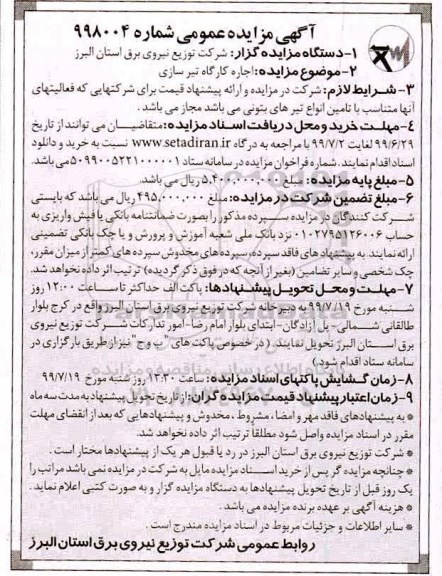 آگهی مزایده عمومی شماره ۹۹۸۰۰۴
۱-دستگاه مزایده گزار: شرکت توزیع نیروی برق استان البرز
۲-موضوع مزایده: اجاره کارگاه تیر سازی
۳- شرایط لازم: شرکت در مزایده و ارائه پیشنهاد قیمت برای شرکتهایی که فعالیتهای
آنها متناسب با تامین انواع تیر های بتونی می باشد مجاز می باشد .
۴-مهلت خرید و محل دریافت اسناد مزایده: متقاضیان می توانند از تاریخ
۹۹/۶/۲۹ لغایت ۹۹/۷/۲ با مراجعه به درگاه www.setadiran.ir نسبت به خرید و دانلود
اسناد اقدام نمایند. شماره فراخوان مزایده در سامانه ستاد ۵۰۹۹۰۰۵۲۲۱۰۰۰۰۰۱ می باشد.
۵-مبلغ پایه مزایده: مبلغ ۵,۴۰۰,۰۰۰,۰۰۰ ریال می باشد.
۶-مبلغ تضمین شرکت در مزایده: مبلغ ۴۹۵,۰۰۰,۰۰۰ ریال می باشد که بایستی
شرکت کنندگان در مزایده سپرده مذکور را بصورت ضمانتنامه بانکی یا فیش واریزی به
حساب ۰۱۰۲۷۹۵۱۲۶۰۰۶ نزد بانک ملی شعبه آموزش و پرورش و یا چک بانکی تضمینی
ارائه نمایند. به پیشنهاد های فاقد سپرده، سپرده های مخدوش سپرده های کمتر از میزان مقرر،
چک شخصی و سایر تضامین (بغیر از آنچه که در فوق ذکر گردیده) ترتیب اثر داده نخواهد شد.
۷-مهلت و محل تحویل پیشنهادها: پاکت الف حداکثر تا ساعت ۱۲:۰۰ روز
شنبه مورخ ۹۹/۷/۱۹ به دبیرخانه شرکت توزیع نیروی برق استان البرز واقع در کرج بلوار
طالقانی شمالی-پل آزادگان-ابتدای بلوار امام رضا-امور تدارکات شرکت توزیع نیروی
برق استان البرز تحویل نمایند. (در خصوص پاکت های "ب و ج" نیز از طریق بارگزاری در
سامانه ستاد اقدام شود.)
۸-زمان گشایش پاکتهای اسناد مزایده: ساعت ۱۲:۳۰ روز شنبه مورخ ۹۹/۷/۱۹
۹-زمان اعتبار پیشنهاد قیمت مزایده گران: از تاریخ تحویل پیشنهاد به مدت سه ماه
* به پیشنهادهای فاقد مهر و امضا، مشروط ، مخدوش و پیشنهادهایی که بعد از انقضای مهلت
مقرر در اسناد مزایده واصل شود مطلقا ترتیب اثر داده نخواهد شد.
* شرکت توزیع نیروی برق استان البرز در رد یا قبول هر یک از پیشنهادها مختار است .
* چنانچه مزایده گر پس از خرید اسناد مزایده مایل به شرکت در مزایده نمی باشد مراتب را
یک روز قبل از تاریخ تحویل پیشنهادها به دستگاه مزایده گزار و به صورت کتبی اعلام نماید .
* هزینه آگهی بر عهده برنده مزایده می باشد .
* سایر اطلاعات و جزئیات مربوط در اسناد مزایده مندرج است .
روابط عمومی شرکت توزیع نیروی برق استان البرز